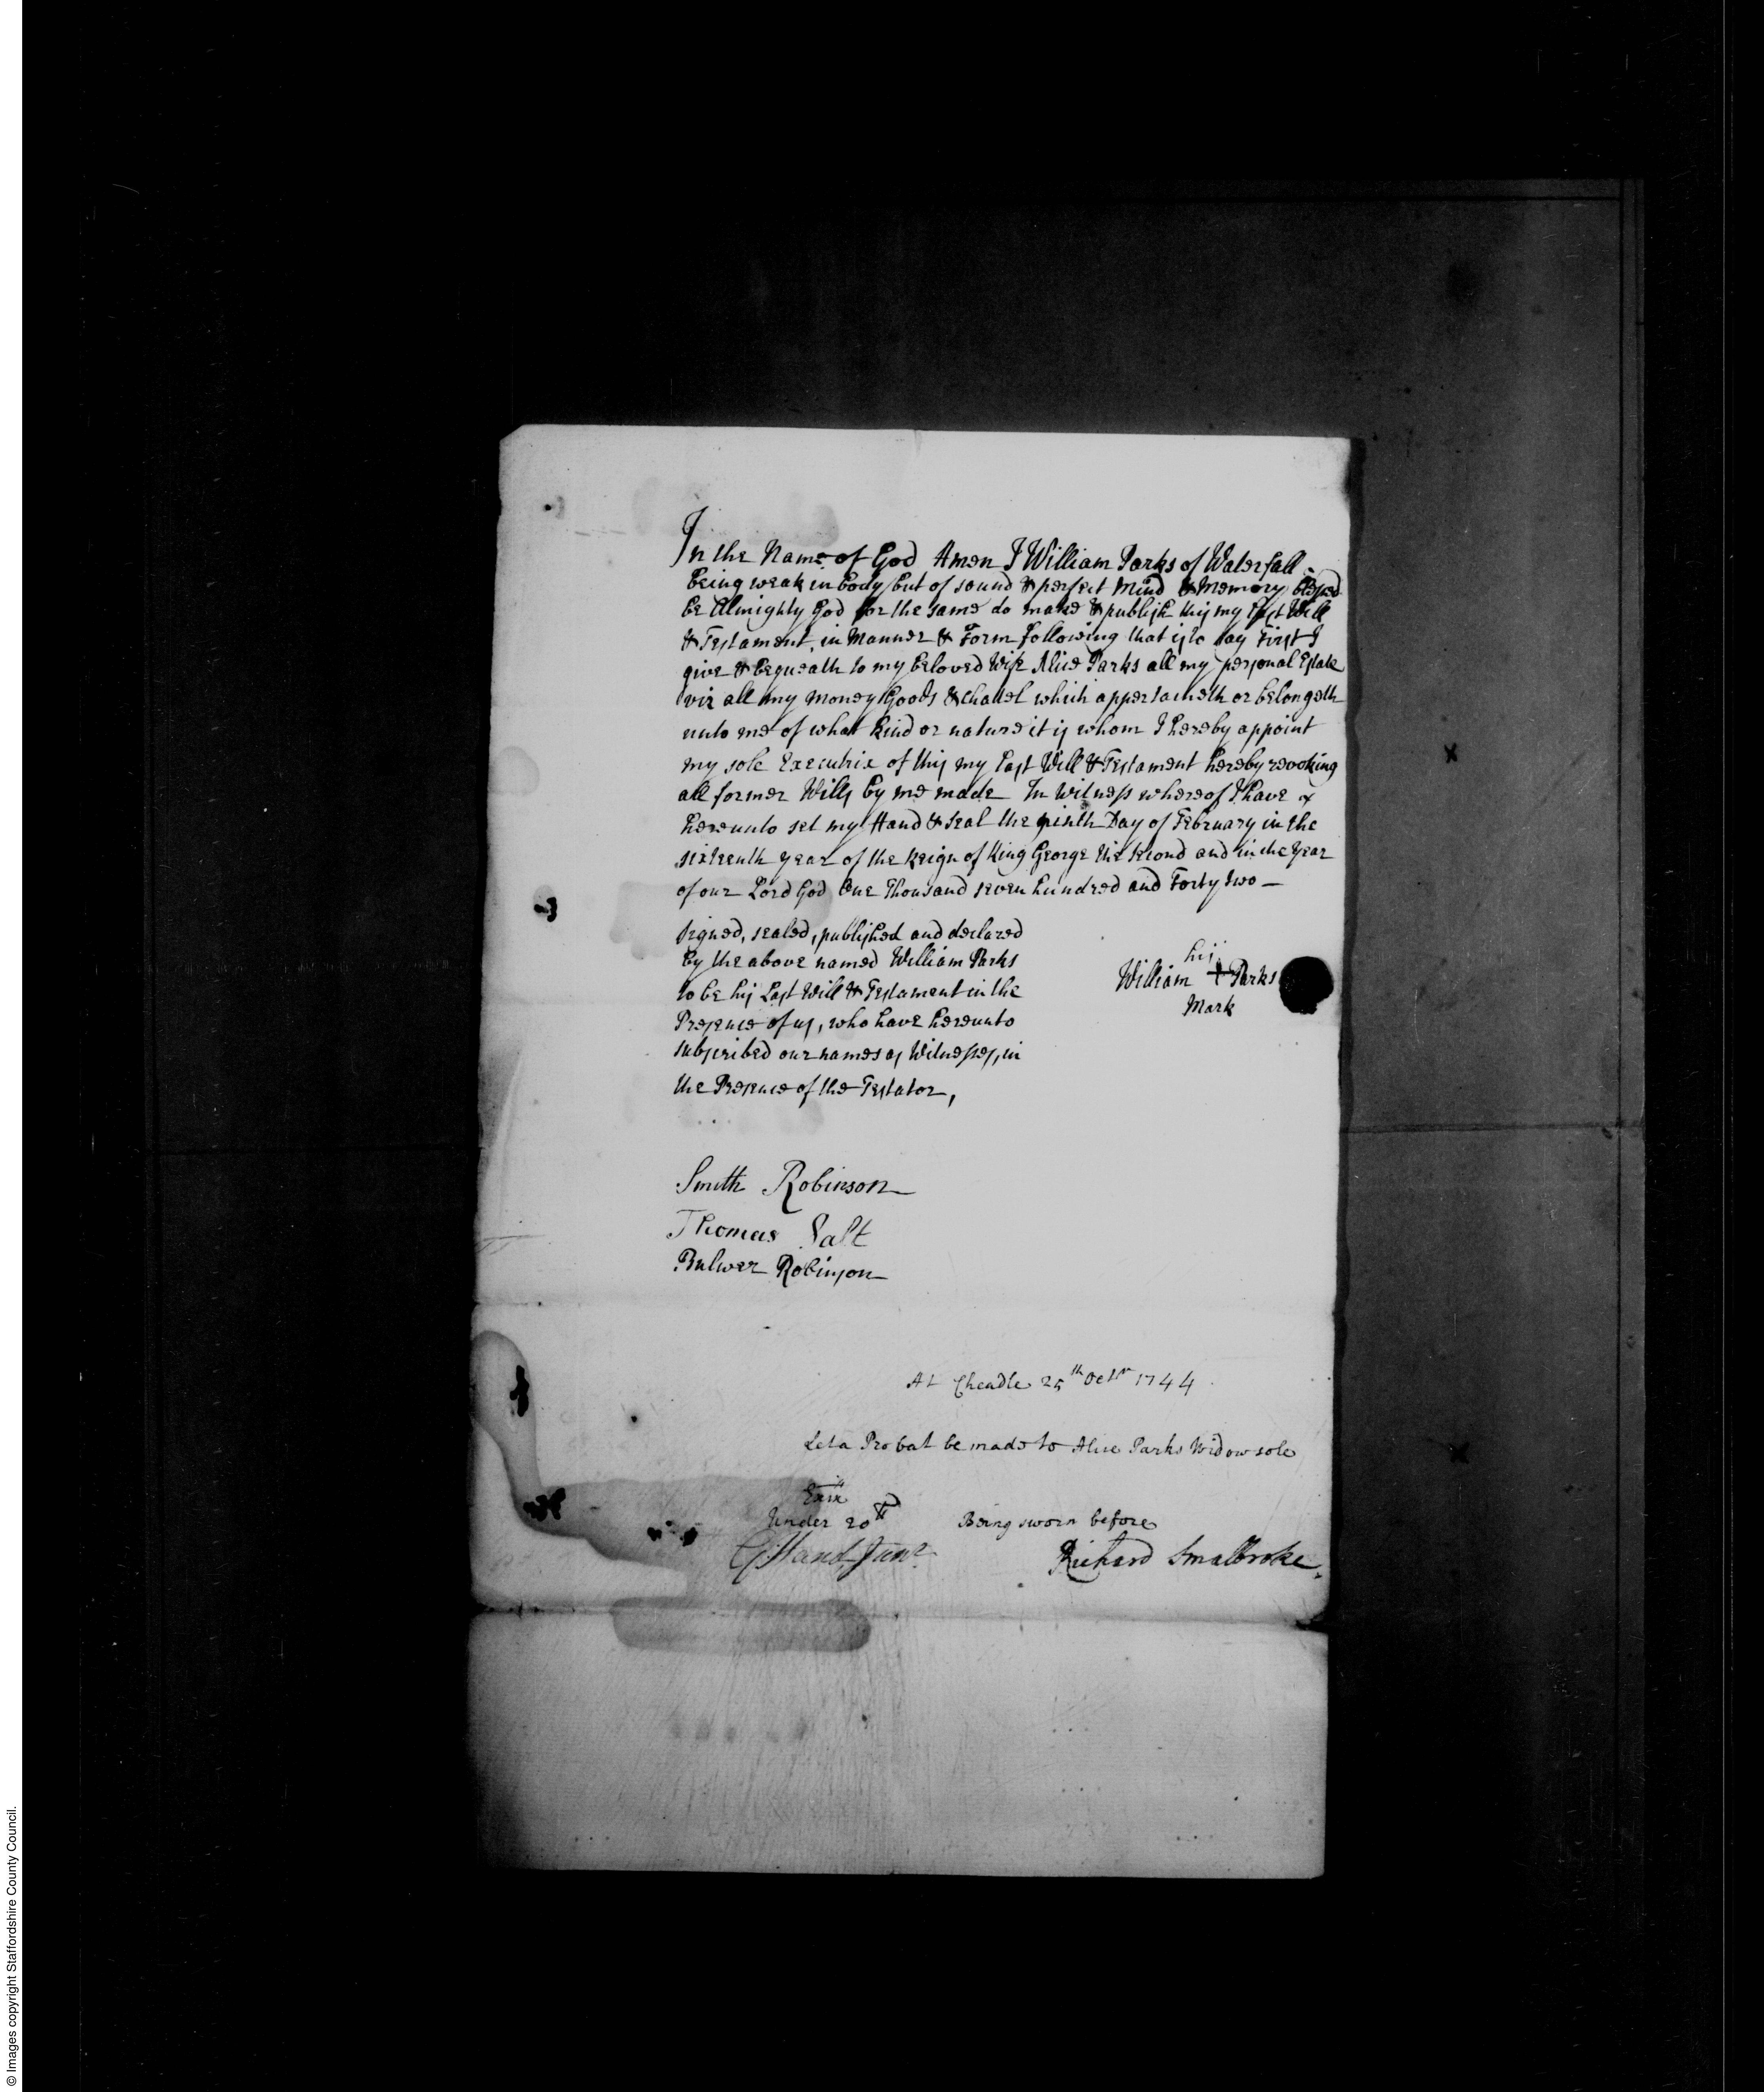 In the Name of God Amen I William Parks of Waterfall
being weak in body but of sound & perfect Mind & Memory blessed
be Almighty God for the same do make & publish this my last Will
& Testament, in Manner & Form following that is to say First I
give & bequeath to my beloved Wife Alice Parks all my personal Estate
viz all my money Goods & Chattel which appertaineth or belongeth
unto me of what kind or nature it is whom I hereby appoint
my sole Executrix of this my Last Will & Testament hereby revoking
all former Wills by me made In Witness whereof I have
hereunto set my Hand & Seal the ninth Day of February in the
sixteenth year of the Reign of King George the second and in the year
of our Lord God One Thousand seven hundred and Forty two
Signed, sealed, published and declared
by the above named William Parks
to be his Last Will & Testament in the
Presence of us, who have hereunto
subscribed our names as Witnesses, in
the Presence of the Testator,
his
William + Parks
Mark
Smith Robinson
Thomas Salt
Bulwer Robinson
At Cheadle 25th Octr 1744
Let a Probat be made to Alice Parks Widow sole
Exix
Under 20
Being sworn before
Richard Smalbroke
© Images copyright Staffordshire County Council.